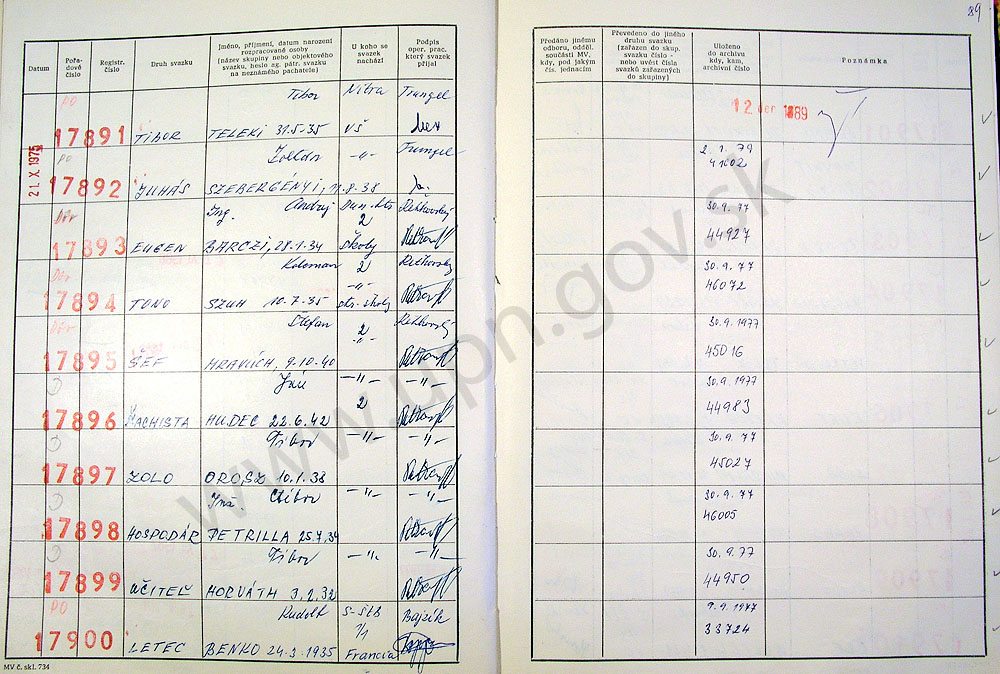 89
Datum
Pořadové číslo
Registr. číslo
Druh svazku
Jméno, příjmení, datum narození
rozpracované osoby
(název skupiny nebo objektového
svazku, heslo ag. pátr. svazku
na neznámého pachatele)
U koho se
svazek
nachází
Podpis
oper. prac.
který svazek
přijal
Předáno jinému
odboru, odděl.
součásti MV,
kdy, pod jakým
čís. jednacím
Převedeno do jiného
druhu svazku
(zařazen do skup.
svazku číslo -
nebo uvést čísla
svazků zařazených
do skupiny)
Uloženo
do archivu
kdy, kam,
archivní číslo
Poznámka
21. X. 1975
PO Tibor Nitra Trungel
17891 TIBOR TELEKI 31.5.35 VŠ
12 1989
PO Zoltán -„- Trungel
17892 JUHÁS SZEBERGÉNYI, 11.8.38
2.1.79
41002
Dôv Ing. Andrej Dun. Str. Rehkovský
2
17893 EUGEN BARCZI, 28.1.34 školy
30.9.77
44927
Dôv Koloman 2 Rehkovský
-„-
17894 TONO SZUH 10.7.35 str. školy
30.9.77
46072
Dôv Štefan 2 Rehkovský
-„-
17895 ŠÉF HRANICH, 9.10.40
30.9.1977
45016
Ján -„- -„-
2
17896 MACHISTA HUDEC 22.6.42
30.9.1977
44983
Tibor -„- -„-
17897 ZOLO OROSZ 10.1.38
30.9.77
45027
Ing. Ctibor -„- -„-
17898 HOSPODÁR PETRILLA 25.7.34
30.9.77
46005
Tibor -„- -„-
17899 UČITEĽ HORVÁTH 3.2.32
30.9.77
44950
PO Rudolf S-ŠtB Bajzík
1/1
17900 LETEC BENKO 24.3.1935 Francia
9.9.1977
33724
MV č. skl. 734
www.upn.gov.sk